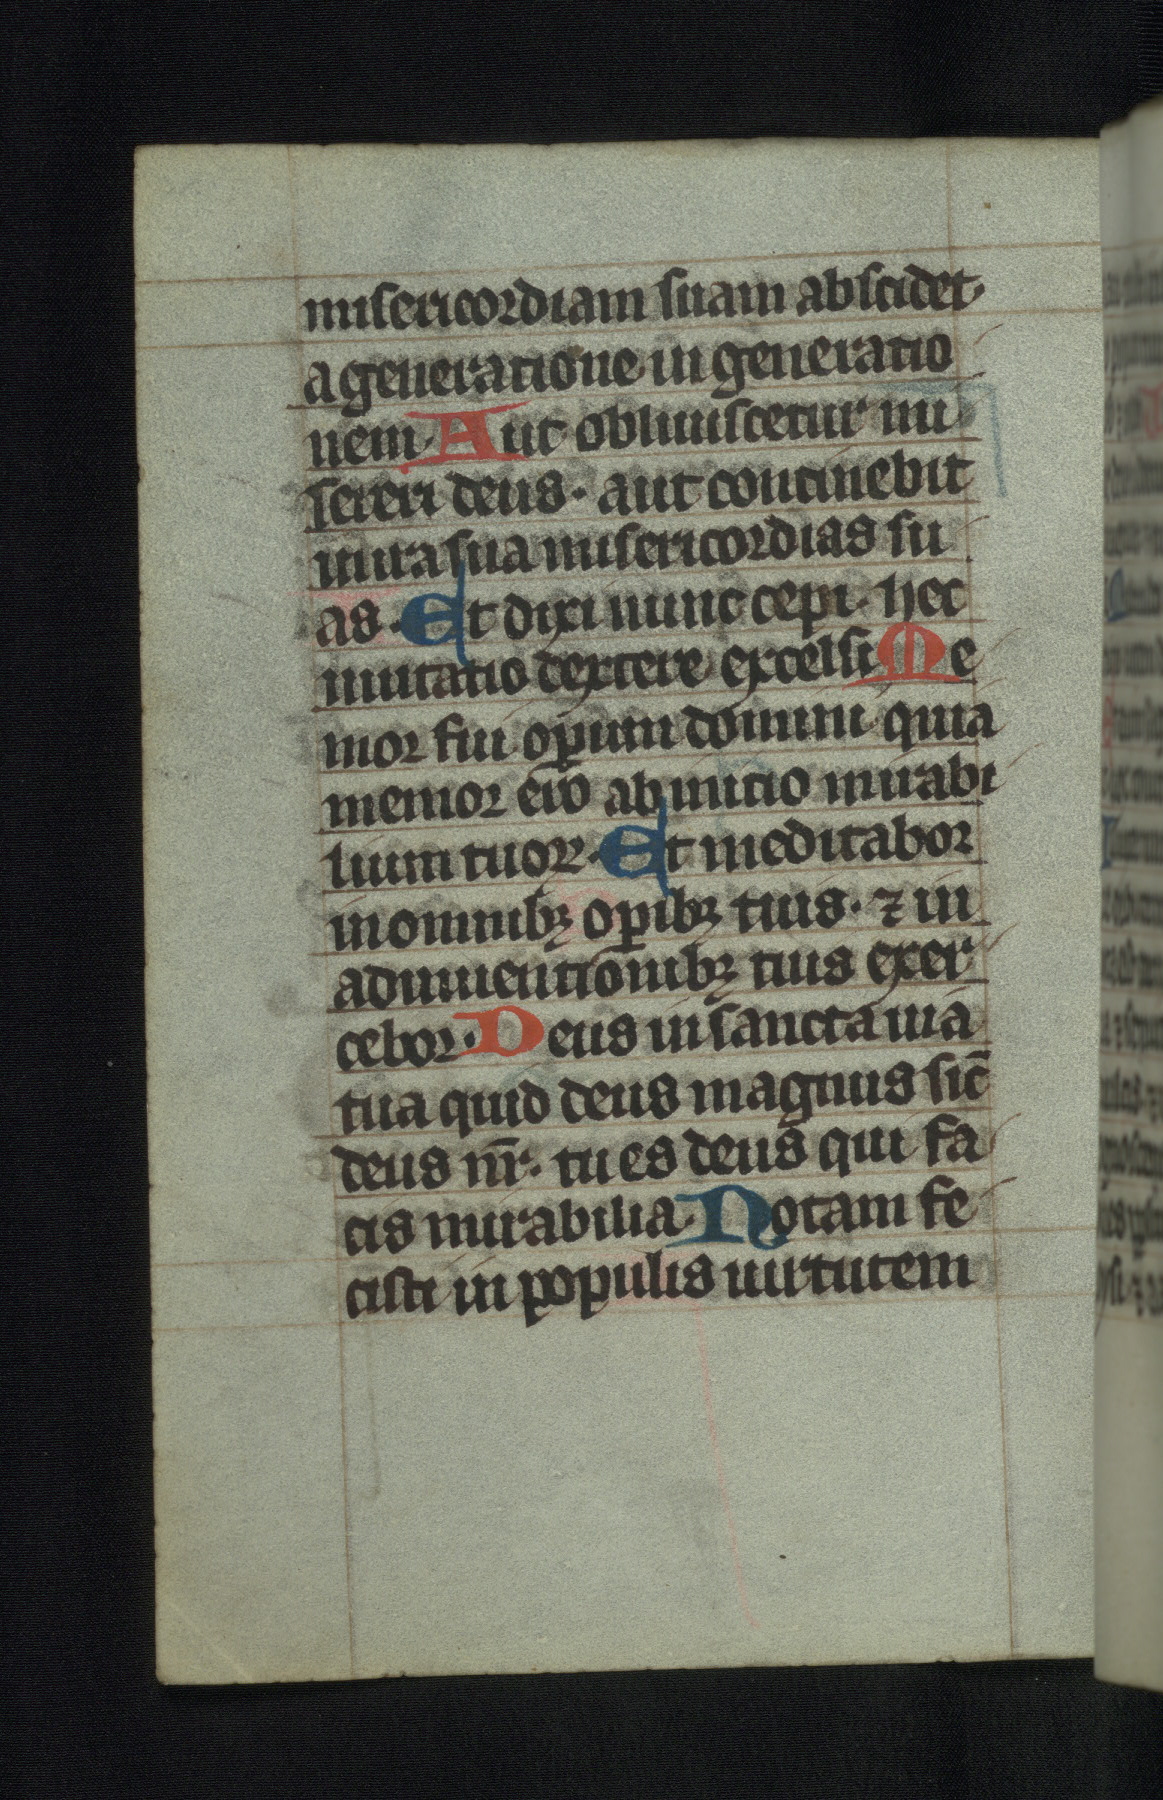 misericordiam suam abscidet·
a generatione in generatio
nem· Aut obliuiscetur mi
sereri deus· aut continebit
in ira sua misericordias su
as· Et dixi nunc cepi· hec
mutatio dextere excelsi Me
mor fui oꝑum domini quia
memor ero ab initio mirabi
lium tuoꝝ· Et meditabor
in omnibꝫ oꝑibꝫ tuis· ⁊ in
adinuentionibꝫ tuis exer
cebor· Deus in sancta uia
tua quid deus magnus sic̄
deus nr̄· tu es deus qui fa
cis mirabilia· Notam fe
cisti in populis uirtutem